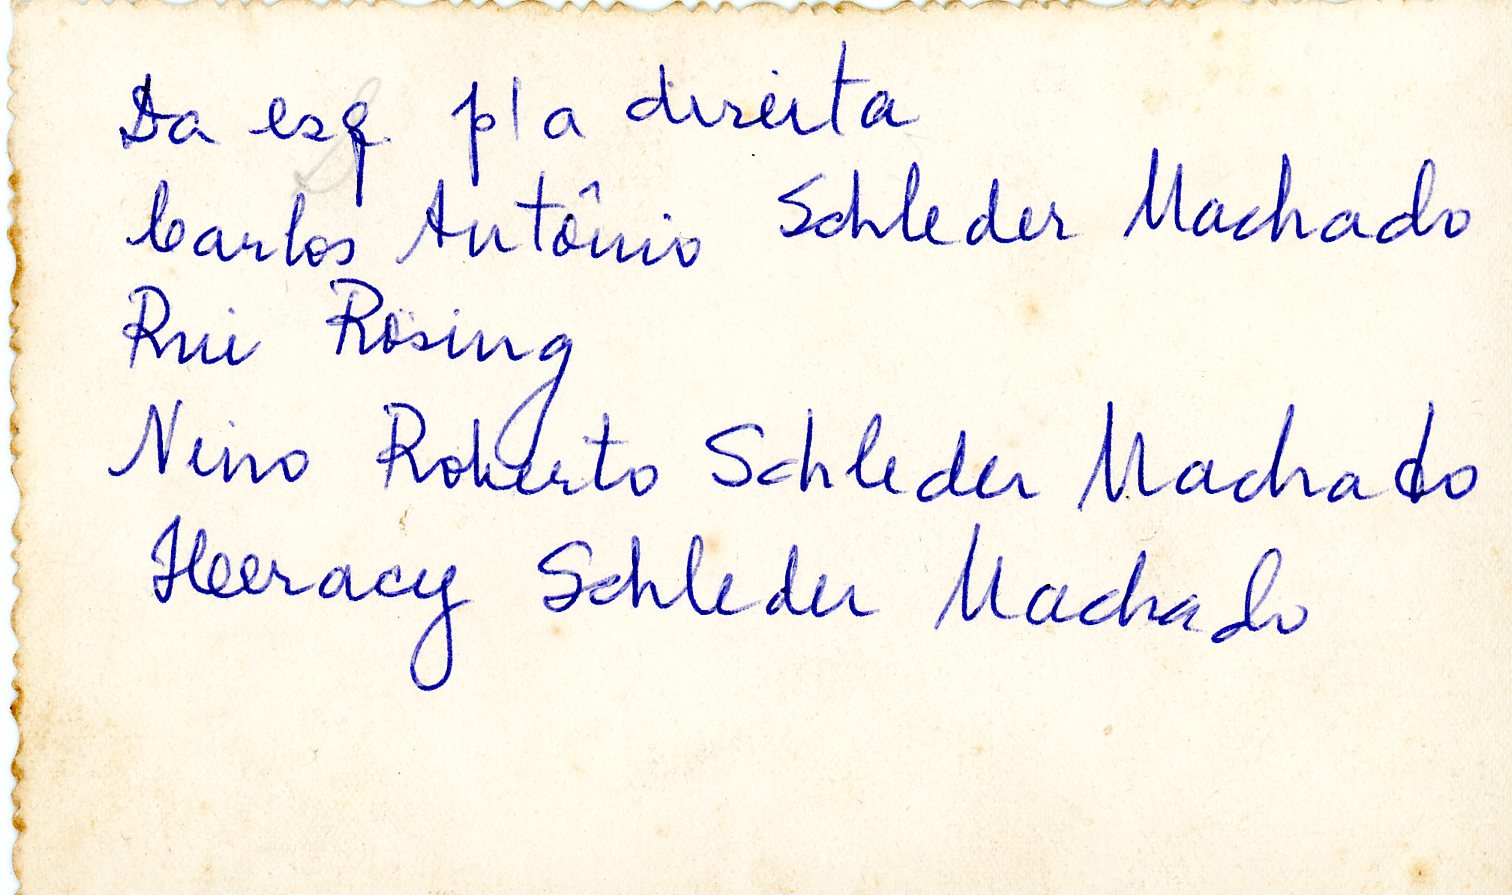 Da esq. p/a direita
Carlos Antônio Schleder Machado
Rui Rösing
Nino Roberto Schleder Machado
Heeracy Schleder Machado